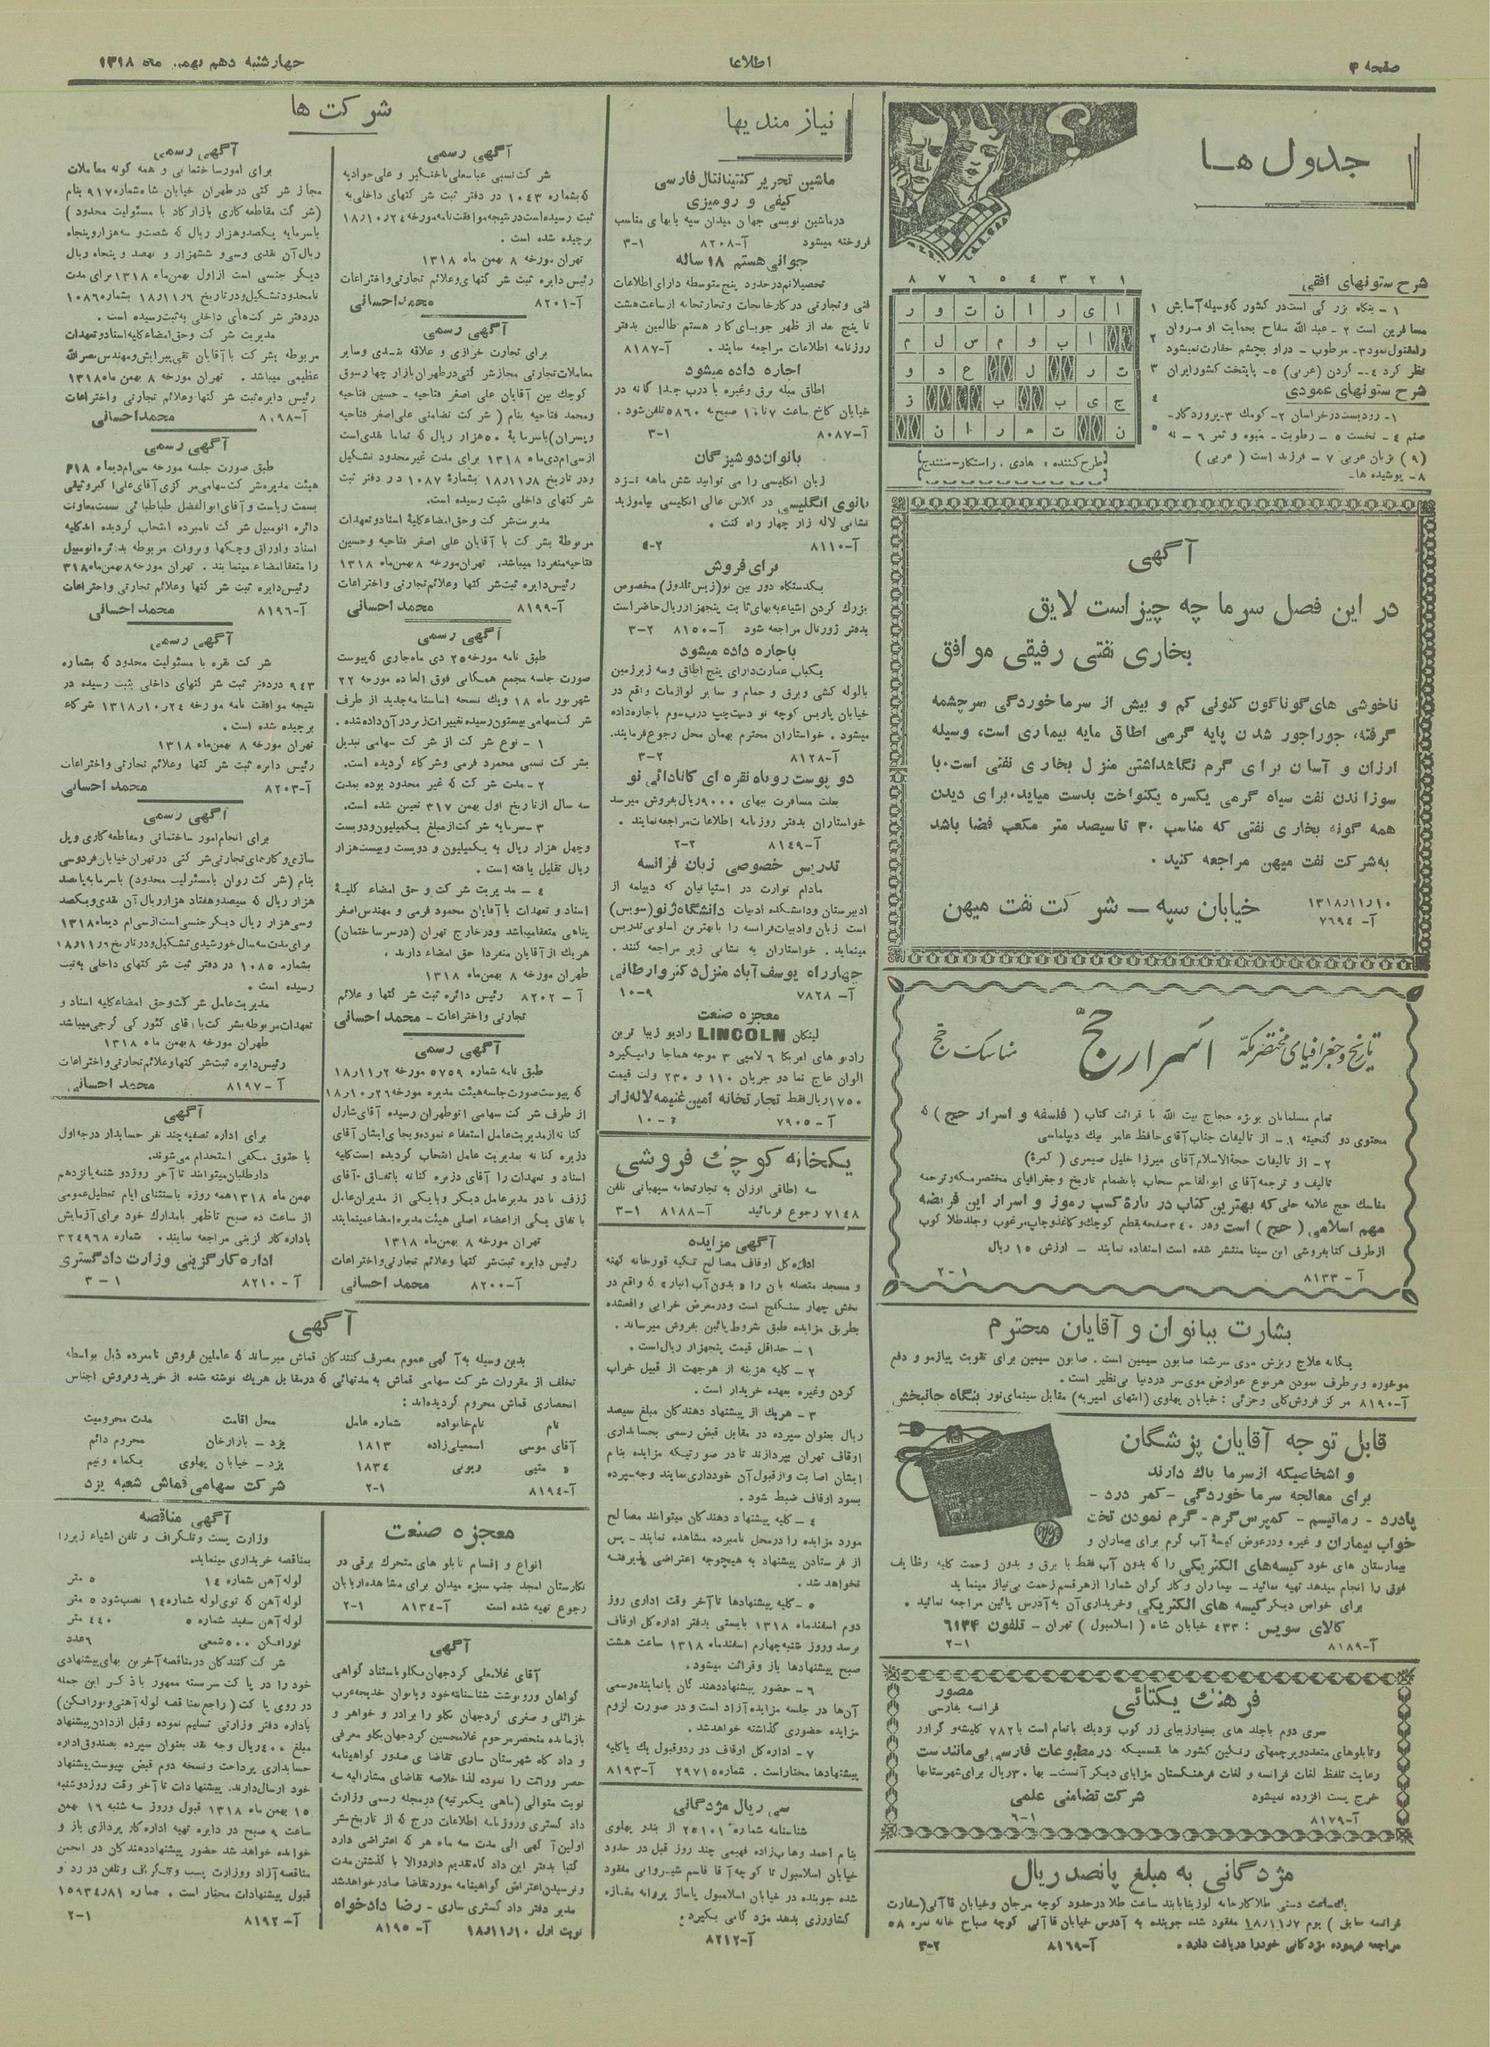 صفحه ۴
اطلاعات
چهارشنبه دهم بهمن ماه ۱۳۱۸
جدول ها
شرح ستونهای افقی
۱ - بنگاه بزرگی است در کشور که وسیله آسایش
مسافرین است ۲ - عبدالله سفاح بحمایت او مروان
رامقتول نمود ۳- مرطوب - دراو بچشم حقارت نمیشود
نظر کرد ٤ - گردن (عربی) ٥ - پایتخت کشور ایران
شرح ستونهای عمودی
۱- رودیست در خراسان ۲- کومك ۳- پروردگار-
صنم ٤- نخست ٥ - رطوبت - میوه و ثمر ٦ - نه
(۹) بزبان عربی ۷ - فرزند است (عربی)
۸ - پوشیده ها-
۱ ۲ ۳ ٤ ٥ ٦ ۷ ۸
ا ی ر ا ن ت و ر
ا ب و م س ل م
ت ر ل ع د و
ج ی ب ب ز
ن ت ه ر ا ن
طرح کننده ، هادی . راستکار - سنندج
آگهی
در این فصل سرما چه چیز است لایق
بخاری نفتی رفیقی موافق
ناخوشی های گوناگون کنونی کم و بیش از سرماخوردگی سرچشمه
گرفته، جوراجور شدن پایه گرمی اطاق مایه بیماری است، وسیله
ارزان و آسان برای گرم نگاهداشتن منزل بخاری نفتی است. با
سوزاندن نفت سیاه گرمی یکسره یکنواخت بدست میاید. برای دیدن
همه گونه بخاری نفتی که مناسب ۳۰ تا سیصد متر مکعب فضا باشد
به شرکت نفت میهن مراجعه کنید .
۱۳۱۸/۱۱/۱۰
آ- ۷٦۹٤
خیابان سپه - شرکت نفت میهن
تاریخ و جغرافیای مختصر مکه
اسرار حج
مناسک حج
تمام مسلمانان بویژه حجاج بیت الله با قرائت کتاب ( فلسفه و اسرار حج ) که
محتوی دو گنجینه ۱- از تالیفات جناب آقای حافظ عامر بیك دیپلماسی
۲- از تالیفات حجة الاسلام آقای میرزا خلیل صیمری ( کمرة)
تالیف و ترجمه آقای ابوالقاسم سحاب بانضمام تاریخ و جغرافیای مختصر مکه و ترجمه
مناسك حج علامه حلی که بهترین کتاب در بارۀ کسب رموز و اسرار این فریضه
مهم اسلامی ( حج ) است ودر ۳٤۰ صفحه بقطع کوچك و کاغذ و چاپ مرغوب و جلد طلا کوب
از طرف کتابفروشی ابن سینا منتشر شده است استفاده نمایند - ارزش ۱٥ ریال
آ - ۸۱۳۳ ۱-۲
بشارت ببانوان و آقایان محترم
یگانه علاج ریزش موی سرشما صابون سیمین است . صابون سیمین برای تقویت پیاز مو و دفع
موخوره و برطرف نمودن هر نوع عوارض موی سر در دنیا بی نظیر است .
آ-۸۱۹۰ مرکز فروش کلی و جزئی : خیابان پهلوی (انتهای امیریه) مقابل سینمای نور بنگاه جانبخش
قابل توجه آقایان پزشگان
و اشخاصیکه از سرما باك دارند
برای معالجه سرما خوردگی - کمر درد -
پادرد - رماتیسم - کمپرس گرم - گرم نمودن تخت
خواب بیماران و غیره ودرعوض کیسۀ آب گرم برای بیماران و
بیمارستان های خود کیسه های الکتریکی را که بدون آب فقط با برق و بدون زحمت کلیه وظایف
فوق را انجام میدهد تهیه نمائید - بیماران و کارگران شمارا از هر قسم زحمت بی نیاز مینماید
برای خواص دیگر کیسه های الکتریکی و خریداری آن به آدرس پائین مراجعه نمائید .
کالای سویس : ٤۳۳ خیابان شاه ( اسلامبول ) تهران - تلفون ٦۱۳۴
آ-۸۱۸۹ ۱-۲
فرهنك یکتائی
مصور
فرانسه بفارسی
سری دوم باجلد های بسیار زیبای زر کوب نزدیك باتمام است با ۷۸۲ کلیشه و گراور
وتابلوهای متعدد و پرچمهای رنگین کشور ها بقسمیکه در مطبوعات فارسی بی مانند ست
رعایت تلفظ لغات فرانسه و لغات فرهنگستان مزایای دیگر آنست - بها ۳۰ ریال برای شهرستانها
خرج پست افزوده نمیشود شرکت تضامنی علمی
آ-۸۱۷۹ ۱-٦
مژدگانی به مبلغ پانصد ریال
یکساعت دستی طلا کارخانه لوزینا بابند ساعت طلا در حدود کوچه مرجان و خیابان قاآنی (سفارت
فرانسه سابق ) یوم ۱۸/۱۱/۷ مفقود شده جوینده به آدرس خیابان قاآنی کوچه صباح خانه نمره ٥۸
مراجعه نموده مژدگانی خودرا دریافت دارد . آ-۸۱٦۹ ۲-۳
نیازمندیها
ماشین تحریر کنتیناتنال فارسی
کیفی و رومیزی
درماشین نویسی جهان میدان سپه بابهای مناسب
فروخته میشود آ-۸۲۰۸ ۱-۳
جوانی هستم ۱۸ ساله
تحصیلاتم در حدود پنج متوسطه دارای اطلاعات
فنی و تجارتی در کارخانجات و تجارتخانه از ساعت هشت
تا پنج بعد از ظهر جویای کار هستم طالبین بدفتر
روزنامه اطلاعات مراجعه نمایند . آ-۸۱۸۷
اجاره داده میشود
اطاق مبله برق وغیره با درب جداگانه در
خیابان کاخ ساعت ۷ تا ۱۰ صبح به ٥۸٦۰ تلفن شود .
آ-۸۰۸۷ ۱-۳
بانوان دوشیزگان
زبان انگلیسی را می توانید شش ماهه نزد
بانوی انگلیسی در کلاس عالی انگلیسی بیاموزید
نشانی لاله زار چهار راه کنت .
آ-۸۱۱۰ ۲-٤
برای فروش
یکدستگاه دور بین نو (زیس تلدوز) مخصوص
بزرك کردن اشیاء به بهای ثابت پنجهزار ریال حاضر است
بدفتر ژورنال مراجعه شود آ-۸۱٥۰ ۲-۳
باجاره داده میشود
یکباب عمارت دارای پنج اطاق و سه زیرزمین
بالوله کشی و برق و حمام و سایر لوازمات واقع در
خیابان پاریس کوچه نو دست چپ درب سوم باجاره داده
میشود . خواستاران محترم بهمان محل رجوع فرمایند .
آ-۸۱۲۸ ۲-۳
دو پوست روباه نقره ای کانادائی نو
بعلت مسافرت ببهای ۹۰۰۰ ریال بفروش میرسد
خواستاران بدفتر روزنامه اطلاعات مراجعه نمایند .
آ-۸۱٤۹ ۲-۲
تدریس خصوصی زبان فرانسه
مادام نوارت در استپانیان که دیپلمه از
ادبیرستان ودانشکده ادبیات دانشگاه ژنو (سویس)
است زبان وادبیات فرانسه را بابهترین اسلوبی تدریس
مینماید . خواستاران به نشانی زیر مراجعه کنند .
چهارراه یوسف آباد منزل دکتر وارطانی
آ- ۷۸۲۸ ۹-۱۰
معجزه صنعت
لینکلن LINCOLN رادیو زیبا ترین
رادیو های امریکا ٦ لامپی ۳ موجه همه جا را میگیرد
الوان عاج نما دو جریان ۱۱۰ و ۲۳۰ ولت قیمت
۱۷٥۰ ریال فقط تجارتخانه امین غنیمه لاله زار
آ - ۷۹۰٥
یکخانه کوچك فروشی
سه اطاقی ارزان به تجارتخانه سپهبانی تلفن
۷۱٤۸ رجوع فرمائید آ-۸۱۸۸ ۱-۳
آگهی مزایده
اداره کل اوقاف مصالح تکیه قورخانه کهنه
و مسجد متصله بان را « بدون آب انبار » که واقع در
بخش چهار سنگلج است ودرمعرض خرابی واقعشده
بطریق مزایده طبق شروط پائین بفروش میرساند .
۱ - حداقل قیمت پنجهزار ریال است .
۲ - کلیه هزینه از هرجهت از قبیل خراب
کردن وغیره بعهده خریدار است .
۳ - هریك از پیشنهاد دهندگان مبلغ سیصد
ریال بعنوان سپرده در مقابل قبض رسمی بحسابداری
اوقاف تهران بپردازند تا در صورتیکه مزایده بنام
ایشان اصابت و از قبول آن خودداری نمایند وجه سپرده
بسود اوقاف ضبط شود .
٤ - کلیه پیشنهاد دهندگان میتوانند مصالح
مورد مزایده را درمحل نامبرده مشاهده نمایند - پس
از فرستادن پیشنهاد به هیچوجه اعتراضی پذیرفته
نخواهد شد .
٥ - کلیه پیشنهادها تا آخر وقت اداری روز
دوم اسفندماه ۱۳۱۸ بایستی بدفتر اداره کل اوقاف
برسد وروز شنبه چهارم اسفندماه ۱۳۱۸ ساعت هشت
صبح پیشنهادها باز وقرائت میشود .
٦ - حضور پیشنهاددهندگان یا نماینده رسمی
آن ها در جلسه مزایده آزاد است و در صورت لزوم
مزایده حضوری گذاشته خواهد شد .
۷ - اداره کل اوقاف در ردوقبول یك یا کلیه
پیشنهادها مختار است . شماره ۲۹۷۱٥ آ-۸۱۹۳
سی ریال مژدگانی
شناسنامه شماره ۲٥۱۰۱ از بندر پهلوی
بنام احمد وهاب زاده فهیمی چند روز قبل در حدود
خیابان اسلامبول تا کوچه آقا قاسم شیروانی مفقود
شده جوینده در خیابان اسلامبول پاساژ پروانه مغازه
کشاورزی بدهد مژدگانی بگیرد .
آ-۸۲۱۲
شرکت ها
آگهی رسمی
شرکت نسبی عباسعلی باختگیر و علی جوادیه
که بشماره ۱۰٤۳ در دفتر ثبت شرکتهای داخلی به
ثبت رسیده است در نتیجه موافقت نامه مورخه ۱۸/۱۰/۲٤
برچیده شده است .
تهران مورخه ۸ بهمن ماه ۱۳۱۸
رئیس دایره ثبت شرکتهای و علائم تجارتی و اختراعات
آ-۸۲۰۱ محمد احسانی
آگهی رسمی
برای تجارت خرازی و علاقه بندی وسایر
معاملات تجارتی مجاز شرکتی در طهران بازار چهارسوق
کوچك بین آقایان علی اصغر فتاحیه - حسین فتاحیه
ومحمد فتاحیه بنام ( شرکت تضامنی علی اصغر فتاحیه
وپسران ) با سرمایۀ ٥۰ هزار ریال که تماما نقدی است
از سی ام دی ماه ۱۳۱۸ برای مدت غیر محدود تشکیل
ودر تاریخ ۱۸/۱۱/۸ بشمارۀ ۱۰۸۷ در دفتر ثبت
شرکتهای داخلی ثبت رسیده است .
مدیریت شرکت وحق امضاء کلیۀ اسناد و تعهدات
مربوطۀ بشرکت با آقایان علی اصغر فتاحیه و حسین
فتاحیه منفردا میباشد . تهران مورخه ۸ بهمن ماه ۱۳۱۸
رئیس دایره ثبت شرکتها وعلائم تجارتی و اختراعات
آ-۸۱۹۹ محمد احسانی
آگهی رسمی
طبق نامه مورخه ۲٥ دی ماه جاری که پیوست
صورت جلسه مجمع همگانی فوق العاده مورخه ۲۲
شهریور ماه ۱۸ ویك نسخه اساسنامه جدید از طرف
شرکت سهامی بیستون رسیده تغییرات زیر در آن داده شده .
۱ - نوع شرکت از شرکت سهامی تبدیل
بشرکت نسبی محمود فرمی و شرکاء گردیده است .
۲ - مدت شرکت که غیر محدود بوده بمدت
سه سال از تاریخ اول بهمن ۳۱۷ تعیین شده است .
۳ - سرمایه شرکت از مبلغ یکمیلیون و دویست
وچهل هزار ریال به یکمیلیون و دویست و بیست هزار
ریال تقلیل یافته است .
٤ - مدیریت شرکت و حق امضاء کلیۀ
اسناد و تعهدات با آقایان محمود فرمی و مهندس اصغر
پناهی متفقا میباشد ودر خارج تهران (در سر ساختمان)
هریك از آقایان منفردا حق امضاء دارند .
طهران مورخه ۸ بهمن ماه ۱۳۱۸
آ - ۸۲۰۲ رئیس دائره ثبت شرکتها و علائم
تجارتی و اختراعات - محمد احسانی
آگهی رسمی
طبق نامه شماره ٥۷٥۹ مورخه ۱۸/۱۱/۲
که پیوست صورت جلسه هیئت مدیره مورخه ۱۸/۱۰/۲٦
از طرف شرکت سهامی اتو طهران رسیده آقای شارل
کتانه از مدیریت عامل استعفاء نموده و بجای ایشان آقای
دزیره کتانه بمدیریت عامل انتخاب گردیده است کلیه
اسناد و تعهدات را آقای دزیره کتانه باتفاق آقای
ژزف نادر مدیرعامل دیگر و یا یکی از مدیران عامل
با تفاق یکی از اعضاء اصلی هیئت مدیره امضاء مینمایند
تهران مورخه ۸ بهمن ماه ۱۳۱۸
رئیس دایره ثبت شرکتها وعلائم تجارتی و اختراعات
آ-۸۲۰۰ محمد احسانی
آگهی رسمی
برای امور ساختمانی و همه گونه معاملات
مجاز شرکتی در طهران خیابان شاه شماره ۹۱۷ بنام
(شرکت مقاطعه کاری بازار کاد با مسئولیت محدود )
باسرمایه یکصد و هزار ریال که شصت و سه هزار و پنجاه
ریال آن نقدی و سی و ششهزار و نهصد و پنجاه ریال
دیگر جنسی است از اول بهمن ماه ۱۳۱۸ برای مدت
نامحدود تشکیل و در تاریخ ۱۸/۱۱/٦ بشماره ۱۰۸٦
در دفتر شرکت های داخلی به ثبت رسیده است .
مدیریت شرکت وحق امضاء کلیه اسناد و تعهدات
مربوطه بشرکت با آقایان تقی پیرایش و مهندس نصرالله
عظیمی میباشد . تهران مورخه ۸ بهمن ماه ۱۳۱۸
رئیس دایره ثبت شرکتها وعلائم تجارتی و اختراعات
آ-۸۱۹۸ محمد احسانی
آگهی رسمی
طبق صورت جلسه مورخه سی ام دیماه ۳۱۸
هیئت مدیره شرکت سهامی مرکزی آقای علی اکبر وثیقی
بسمت ریاست و آقای ابوالفضل طباطبائی بسمت معاونت
دائره اتومبیل شرکت نامبرده انتخاب گردیده اند کلیه
اسناد و اوراق و چکها و بروات مربوطه بدائره اتومبیل
را متفقا امضاء مینمایند . تهران مورخه ۸ بهمن ماه ۳۱۸
رئیس دایره ثبت شرکتها وعلائم تجارتی و اختراعات
آ-۸۱۹٦ محمد احسانی
آگهی رسمی
شرکت نقره با مسئولیت محدود که بشماره
۹٤۳ در دفتر ثبت شرکتهای داخلی بثبت رسیده در
نتیجه موافقت نامه مورخه ۱۳۱۸/۱۰/۲٤ شرکاء
برچیده شده است .
تهران مورخه ۸ بهمن ماه ۱۳۱۸
رئیس دایره ثبت شرکتها وعلائم تجارتی و اختراعات
آ-۸۲۰۳ محمد احسانی
آگهی رسمی
برای انجام امور ساختمانی و مقاطعه کاری و پل
سازی و کارهای تجارتی شرکتی در تهران خیابان فردوسی
بنام (شرکت روان بامسئولیت محدود) با سرمایه پانصد
هزار ریال که سیصد و هفتاد هزار ریال آن نقد و یکصد
و سی هزار ریال دیگر جنسی است از سی ام دیماه ۱۳۱۸
برای مدت سه سال خورشیدی تشکیل و در تاریخ ۱۸/۱۱/٦
بشماره ۱۰۸٥ در دفتر ثبت شرکتهای داخلی به ثبت
رسیده است .
مدیریت عامل شرکت و حق امضاء کلیه اسناد و
تعهدات مربوطه بشرکت با آقای کثور کی گرجی میباشد
طهران مورخه ۸ بهمن ماه ۱۳۱۸
رئیس دایره ثبت شرکتها وعلائم تجارتی و اختراعات
آ-۸۱۹۷ محمد احسانی
آگهی
برای اداره تصفیه چند نفر حسابدار درجه اول
با حقوق مکفی استخدام می شوند .
داوطلبان میتوانند تا آخر روز دو شنبه پانزدهم
بهمن ماه ۱۳۱۸ همه روزه باستثنای ایام تعطیل عمومی
از ساعت ده صبح تا ظهر بامدارك خود برای آزمایش
باداره کارگزینی مراجعه نمایند . شماره ۳۲٤۹٦۸
اداره کارگزینی وزارت دادگستری
آ- ۸۲۱۰ ۱-۳
آگهی
بدین وسیله به آگهی عموم مصرف کنندگان قماش میرساند که عاملین فروش نامبرده ذیل بواسطه
تخلف از مقررات شرکت سهامی قماش به مدتهائی که در مقابل هریك نوشته شده از خرید و فروش اجناس
انحصاری قماش محروم گردیده اند :
نام نام خانواده شماره عامل محل اقامت مدت محرومیت
آقای موسی اسمعیلی زاده ۱۸۱۳ یزد - بازارخان محروم دائم
« متیی ۱۸۳٤ یزد - خیابان پهلوی یکماه ونیم
آ-۸۱۹٤ ۱-۲ شرکت سهامی قماش شعبه یزد
معجزه صنعت
انواع و اقسام تابلو های متحرك برقی در
نگارستان امجد جنب سبزه میدان برای مشاهده اربابان
رجوع تهیه شده است آ-۸۱۳٤ ۱-۲
آگهی
آقای غلامعلی کردجهان بکلو باستناد گواهی
گواهان ورونوشت شناسنامه خود و بانوان خدیجه عرب
خزائلی و صغری کردجهان بکلو را برادر و خواهر و
بازمانده منحصر مرحوم غلامحسین کردجهان بکلو معرفی
و داد گاه شهرستان ساری تقاضای صدور گواهینامه
حصر وراثت را نموده لذا خلاصه تقاضای مشارالیه سه
نوبت متوالی (ماهی یکمرتبه) در مجله رسمی وزارت
داد گستری وروزنامه اطلاعات درج که از تاریخ نشر
اولین آگهی الی مدت سه ماه هر که اعتراضی دارد
کتبا بدفتر این داد گاه تقدیم دارد والا با گذشتن مدت
و نرسیدن اعتراض گواهینامه مورد تقاضا صادر خواهد شد
مدیر دفتر داد گستری ساری - رضا دادخواه
نوبت اول ۱۸/۱۱/۱۰ آ-۸۱۹٥
آگهی مناقصه
وزارت پست وتلگراف و تلفن اشیاء زیر را
بمناقصه خریداری مینماید.
لوله آهن شماره ۱٤ ٥ متر
لوله آهن که توی لوله شماره ۱٤ نصب شود ٥ متر
لوله آهن سفید شماره ٥ ٤٤۰ متر
نورافکن ٥۰۰ شمعی ٦ عدد
شرکت کنندگان در مناقصه آخرین بهای پیشنهادی
خود را در پاکت سر بسته ممهور باذکر این جمله
در روی پاکت ( راجع بمناقصه لوله آهنی و نورافکن)
باداره دفتر وزارتی تسلیم نموده وقبل از دادن پیشنهاد
مبلغ ٤۰۰ ریال وجه نقد بعنوان سپرده بصندوق اداره
حسابداری پرداخت ونسخه دوم قبض بپیوست پیشنهاد
خود ارسال دارند . پیشنهادات تا آخر وقت روز دوشنبه
۱٥ بهمن ماه ۱۳۱۸ قبول وروز سه شنبه ۱٦ بهمن
ساعت ۹ صبح در دایره تهیه اداره کارپردازی باز و
خوانده خواهد شد حضور پیشنهاد دهندگان در انجمن
مناقصه آزاد ووزارت پست و تلگراف و تلفن در رد و
قبول پیشنهادات مختار است . شماره ۱٥۹۳٤/۸۱
آ-۸۱۹۲ ۱-۲